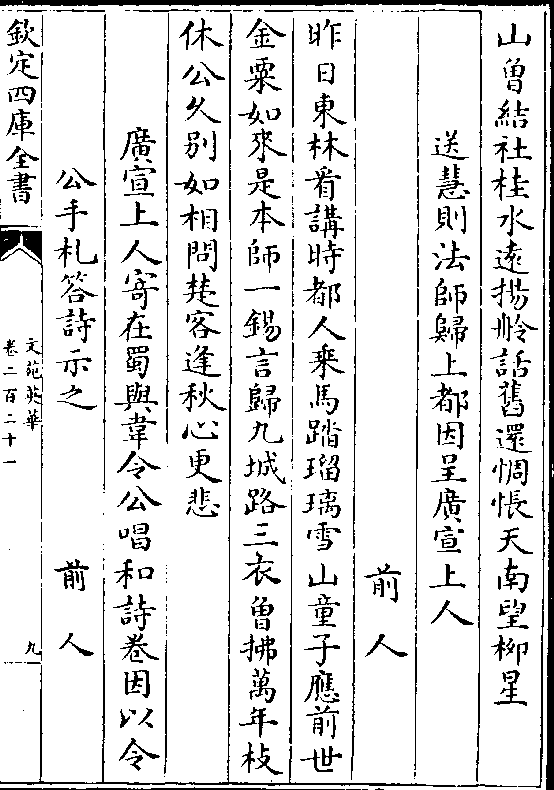 山曽結社桂水遠揚舲話舊還惆悵天南望柳星
送慧則法師歸上都因呈廣宣上人
前人
昨日東林看講時都人乗馬踏瑠璃雪山童子應前世
金粟如來是本師一錫言歸九城路三衣曽拂萬年枝
休公久别如相問楚客逢秋心更悲
廣宣上人寄在蜀與韋令公唱和詩卷因以令
公手札答詩示之
前人
欽定四庫全書
文苑英華
卷二百二十一
九